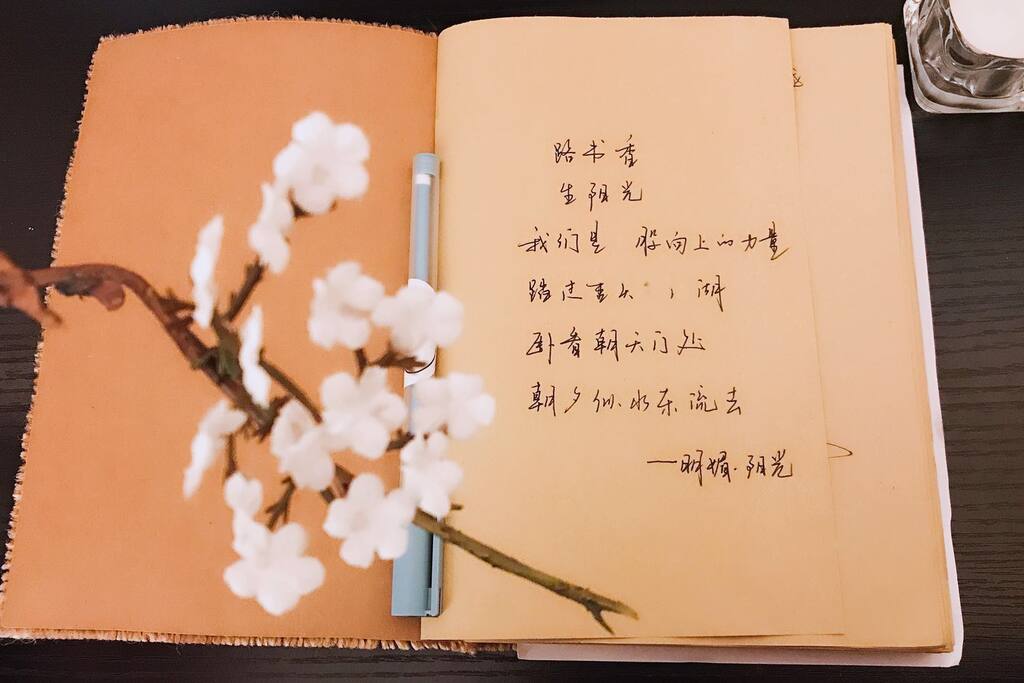 路书香
生阳光
我们是 股向上的力量
踏过 头 湖
卧看朝天门处
朝夕似水东流去
一明媚·阳光